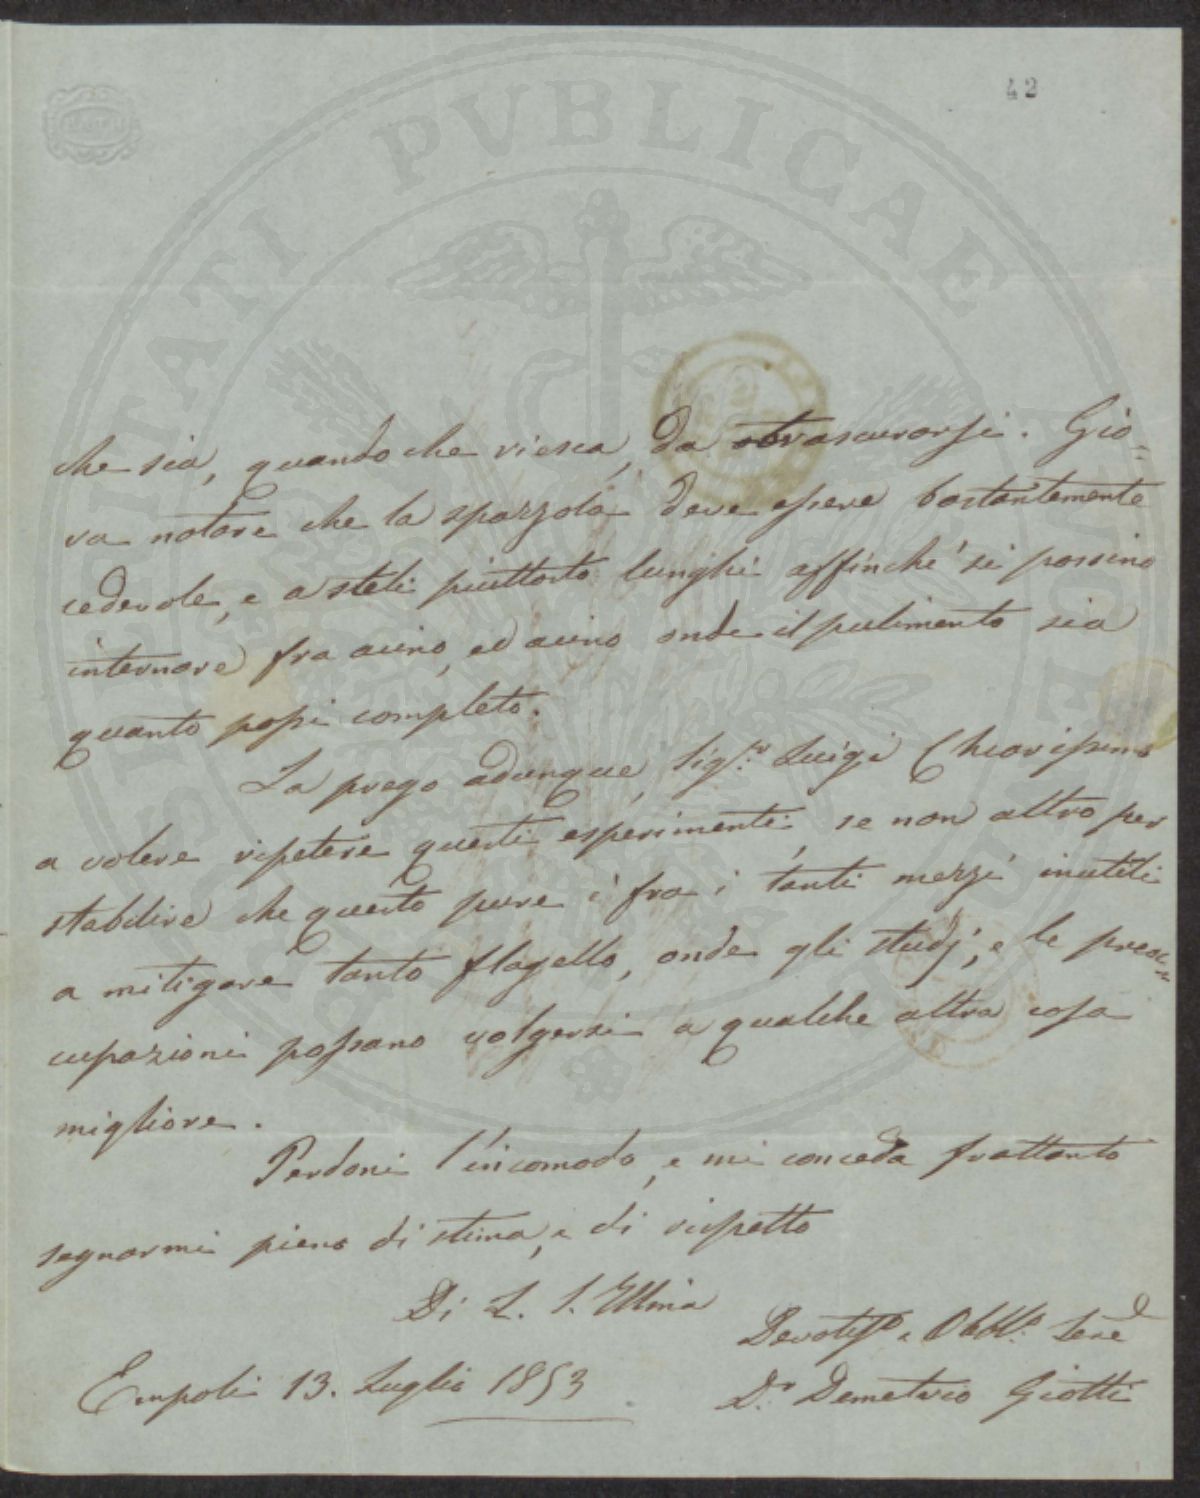 42
PROSPERITATI PVBLICAE AVGENDAE
che sia, quando che riesca, da otrascurarsi. Gio=
va notare che la spazzola deve essere bastantemente
cedevole, e a steli piuttosto lunghi affinchè si possino
internare fra acino, ed acino onde il pulimento sia
quanto possi completo.
La prego adunque, Sig.r Luigi Chiarissimo
a volere ripetere questi esperimenti, se non altro per
stabilire che questo pure è fra i tanti mezzi inutili
a mitigare tanto flagello, onde gli studj, e le preoc=
cupazioni possano volgersi a qualche altra cosa
migliore.
Perdoni l'incomodo, e mi conceda frattanto
segnarmi pieno di stima, e di rispetto
Di L. S. Ill̃ma
Devotiss.o e Obbl.o Serv
Empoli 13. Luglio 1853
D.r Demetrio Giotti